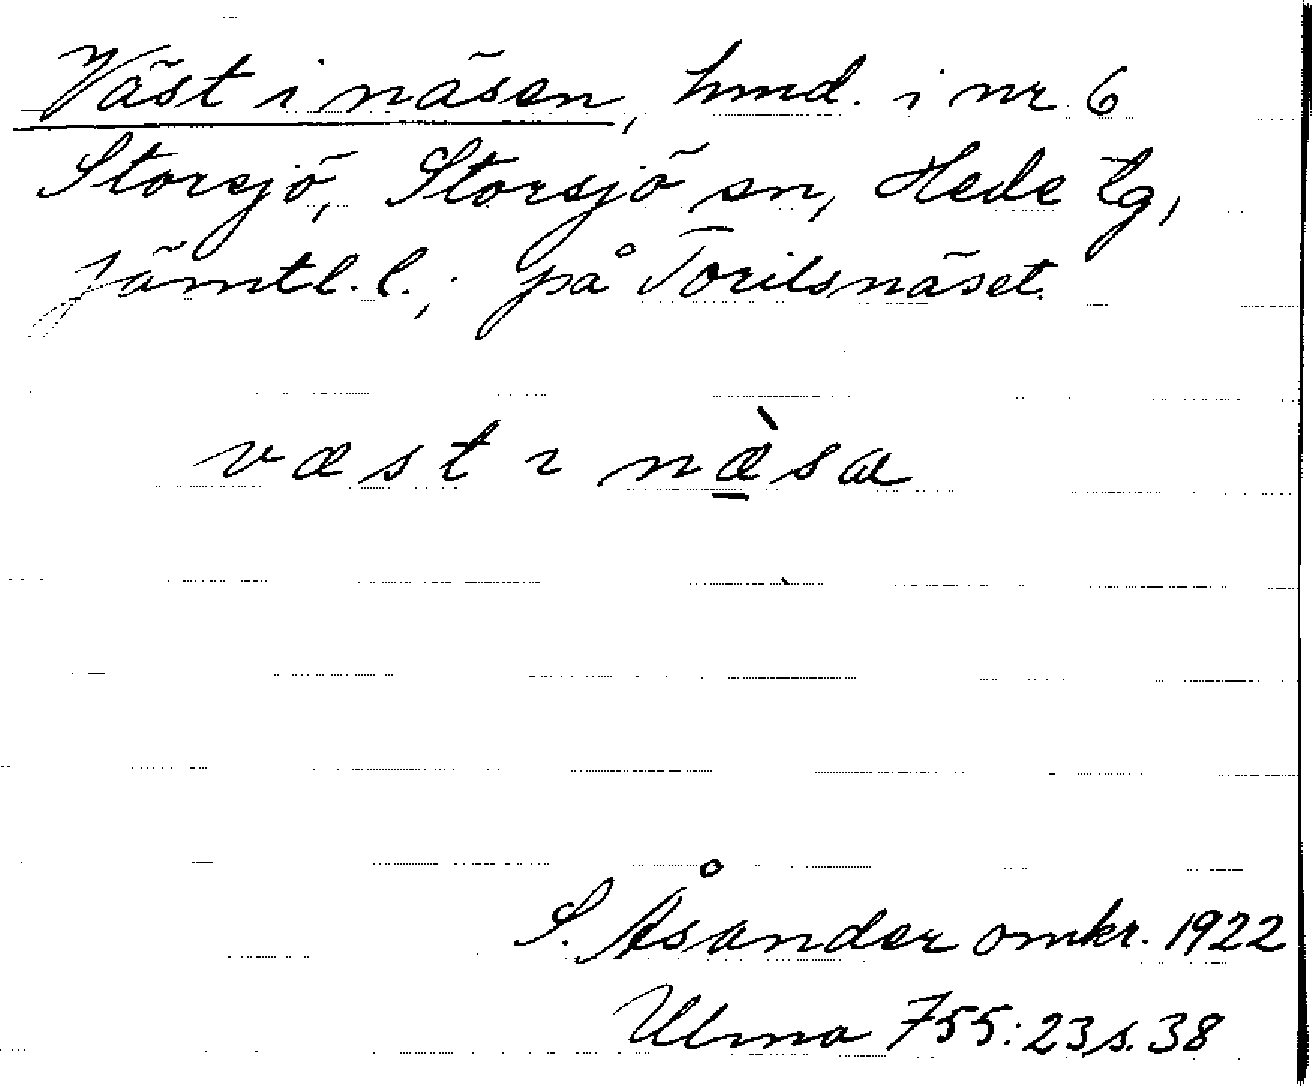 Väst i näsen, hmd. i nr 6
Storsjö, Storsjö sn, Hede tg,
Jämtl. l.; på Torilsnäset.
væst ɩ næ̀sa
S. Åsander omkr. 1922
Ulma 755:23 s. 38